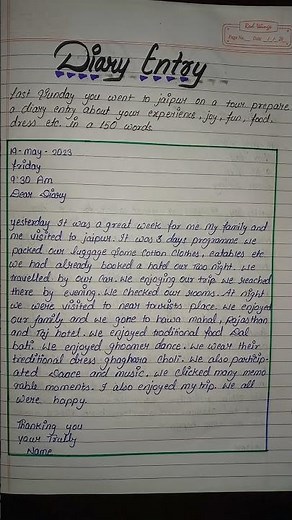 Diary Entry
Last Sunday you went to jaipur on a tour prepare
a diary entry about your experience, joy, fun, food,
dress etc. in a 150 words.
19-may-2023
Friday
9:30 Am
Dear Diary
yesterday It was a great week for me My family and
me visited to jaipur. It was 3 days programme we
packed our luggage Some Cotton Clothes, eatables etc
we had already booked a hotel our Two night. we
travelled by our car. we enjoying our trip we reached
there by evening. we checked our rooms. At night
we were visited to near tourists place. we enjoyed
our family and we gone to hawa mahal, Rajasthan
and Taj hotel. we enjoyed traditional food Dal
bati we enjoyed ghoomer dance. we wear their
treditional dress ghaghara choli. we also particip-
ated Dance and music. we clicked many memo
rable moments. I also enjoyed my trip. we all
were happy.
Thanking you
your Trully
Name